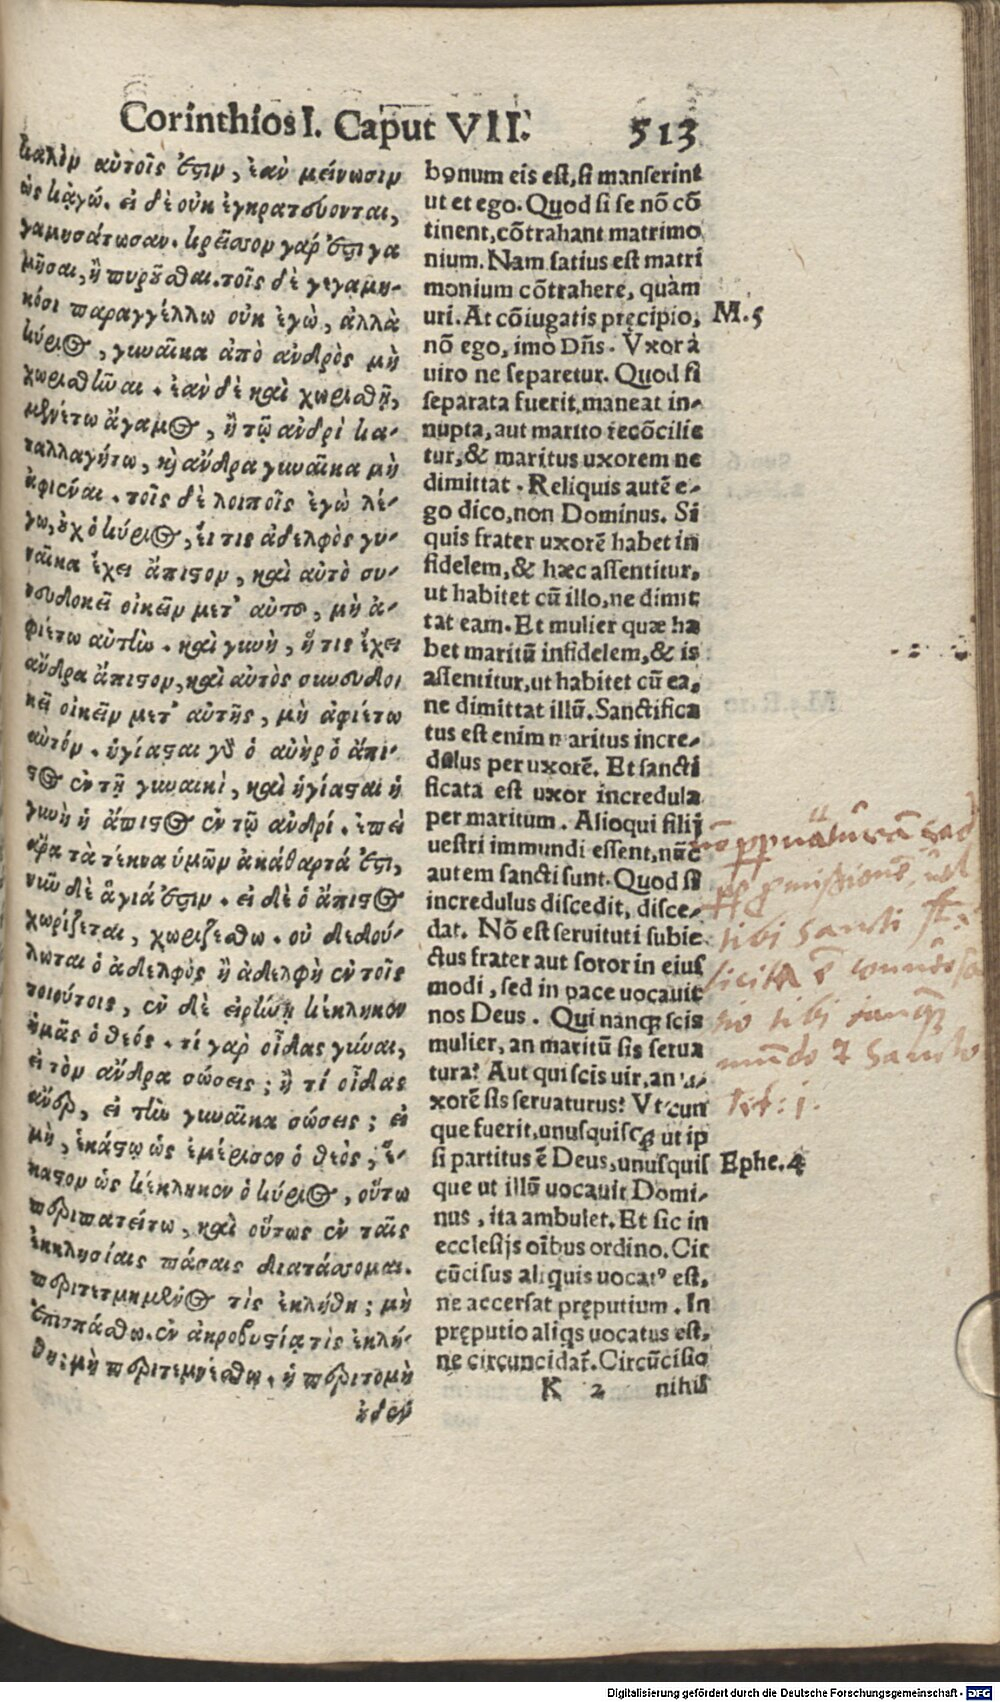 Corinthios I. Caput VII. 513
καλὸν αὐτοῖς ἐστιν, ἐὰν μείνωσιν
ὡς κἀγώ. εἰ δὲ οὐκ ἐγκρατεύονται,
γαμησάτωσαν. κρεῖσσον γάρ ἐστι γα
μῆσαι, ἢ πυροῦσθαι. τοῖς δὲ γεγαμη-
κόσι παραγγέλλω οὐκ ἐγὼ, ἀλλὰ
κύριος, γυναῖκα ἀπὸ ἀνδρὸς μὴ
χωρισθῆναι. ἐὰν δὲ καὶ χωρισθῇ,
μενέτω ἄγαμος, ἢ τῷ ἀνδρὶ κα-
ταλλαγήτω, καὶ ἄνδρα γυναῖκα μὴ
ἀφιέναι. τοῖς δὲ λοιποῖς ἐγὼ λέ-
γω, οὐχ ὁ κύριος, εἴ τις ἀδελφὸς γυ-
ναῖκα ἔχει ἄπιστον, καὶ αὐτὸ συ-
νευδοκεῖ οἰκεῖν μετ' αὐτοῦ, μὴ ἀ-
φιέτω αὐτὴν. καὶ γυνὴ, ἥ τις ἔχει
ἄνδρα ἄπιστον, καὶ αὐτὸς συνευδο
κεῖ οἰκεῖν μετ' αὐτῆς, μὴ ἀφιέτω
αὐτόν. ἡγίασται γὰρ ὁ ἀνὴρ ὁ ἄπι-
στος ἐν τῇ γυναικὶ, καὶ ἡγίασται ἡ
γυνὴ ἡ ἄπιστος ἐν τῷ ἀνδρί. ἐπεὶ
ἄρα τὰ τέκνα ὑμῶν ἀκάθαρτά ἐστι,
νῦν δὲ ἅγιά ἐστιν. εἰ δὲ ὁ ἄπιστος
χωρίζεται, χωριζέσθω. οὐ δεδού-
λωται ὁ ἀδελφὸς ἢ ἀδελφὴ ἐν τοῖς
τοιούτοις, ἐν δὲ εἰρήνῃ κέκληκεν
ἡμᾶς ὁ θεός. τί γὰρ οἶδας γύναι,
εἰ τὸν ἄνδρα σώσεις; ἢ τί οἶδας
ἄνερ, εἰ τὴν γυναῖκα σώσεις; εἰ
μὴ, ἑκάστῳ ὡς ἐμέρισεν ὁ θεὸς, ἕ-
καστον ὡς κέκληκεν ὁ κύριος, οὕτω
περιπατείτω, καὶ οὕτως ἐν ταῖς
ἐκκλησίαις πάσαις διατάσσομαι.
περιτετμημένος τὶς ἐκλήθη; μὴ
ἐπισπάσθω. ἐν ἀκροβυστίᾳ τὶς ἐκλή-
θη; μὴ περιτεμνέσθω. ἡ περιτομὴ
οὐδέν
bonum eis est, si manserint
ut et ego. Quod si se nõ cõ
tinent, cõtrahant matrimo
nium. Nam satius est matri
monium cõtrahere, quàm
uri. At cõiugatis pręcipio,
nõ ego, imò Dñs. Vxor à
uiro ne separetur. Quod si
separata fuerit, maneat in-
nupta, aut marito recõcilie
tur, & maritus uxorem ne
dimittat. Reliquis autẽ e-
go dico, non Dominus. Si
quis frater uxorẽ habet in
fidelem, & hæc assentitur,
ut habitet cũ illo, ne dimit
tat eam. Et mulier quæ ha
bet maritũ infidelem, & is
assentitur, ut habitet cũ ea,
ne dimittat illũ. Sanctifica
tus est enim maritus incre-
dulus per uxorẽ. Et sancti
ficata est uxor incredula
per maritum. Alioqui filij
uestri immundi essent, nũc
autem sancti sunt. Quod si
incredulus discedit, disce-
dat. Nõ est seruituti subie
ctus frater aut soror in eius
modi, sed in pace uocauit
nos Deus. Qui nanqꝫ scis
mulier, an maritũ sis serua
tura? Aut qui scis uir, an u-
xorẽ sis seruaturus? Vtcun
que fuerit, unusquisqꝫ ut ip
si partitus ẽ Deus, unusquis
que ut illũ uocauit Domi-
nus, ita ambulet. Et sic in
ecclesijs oĩbus ordino. Cir
cũcisus aliquis uocatꝰ est,
ne accersat pręputium. In
pręputio aliqs uocatus est,
ne circuncidat̃. Circũcisio
K 2 nihil
M. 5
sibi sancti
licita ẽ
sibi
mũdo
tit: 1.
Ephe. 4
Digitalisierung gefördert durch die Deutsche Forschungsgemeinschaft - DFG